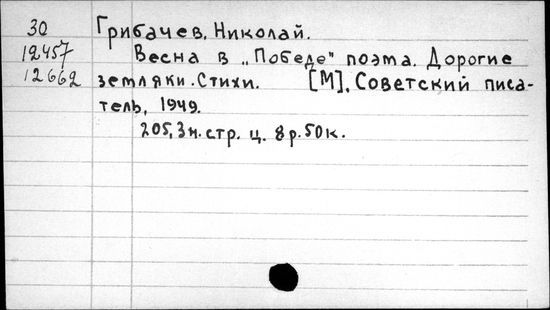 30 Грибачев, Николай.
12457 Весна в „Победе" поэма. Дорогие
12662 земляки. Стихи. [М], Советский писа-
тель, 1949.
205,3н.стр. ц. 8р.50к.